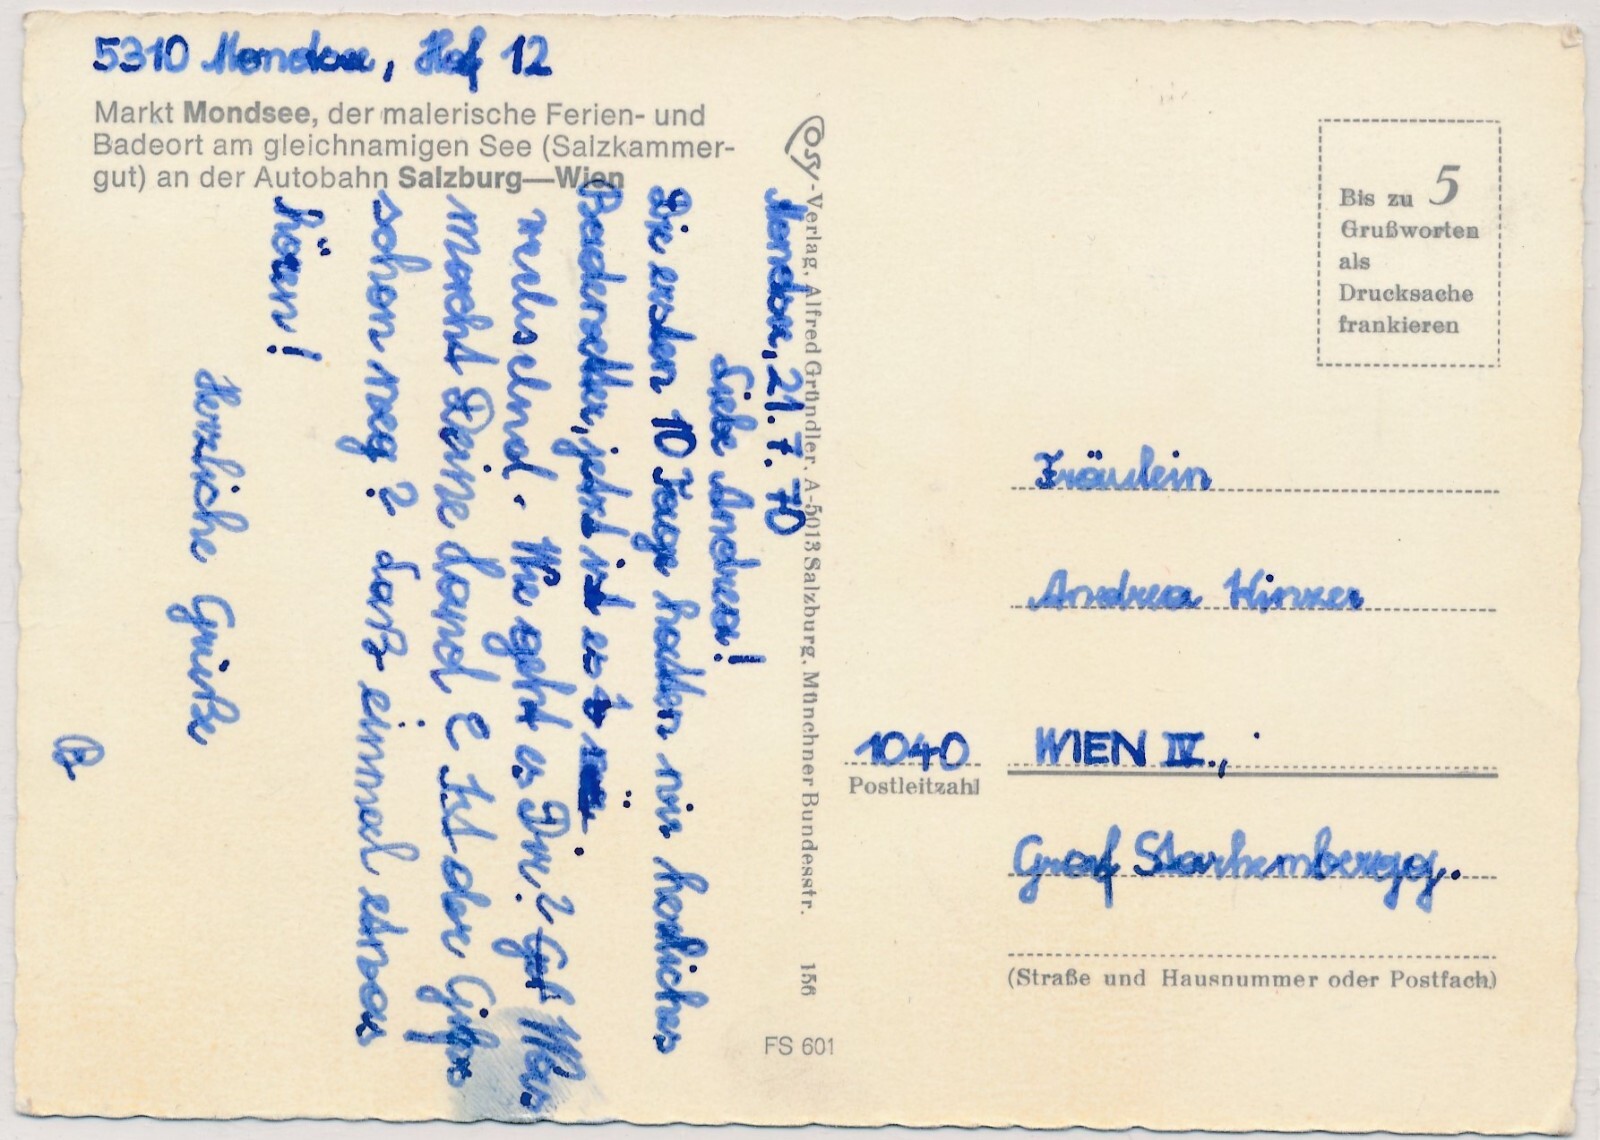 5310 Mondsee, Hof 12
Markt Mondsee, der malerische Ferien- und
Badeort am gleichnamigen See (Salzkammer-
gut) an der Autobahn Salzburg—Wien
Mondsee, 21.7.70
Liebe Andrea!
Die ersten 10 Tage hatten wir herrliches
Badewetter, jetzt ist es
wechselnd. Wie geht es Dir? Was
macht Deine Hand? Ist der Gips
schon weg? Laß einmal etwas
hören!
Herzliche Grüße
Cosy-Verlag, Alfred Gründler, A-5013 Salzburg, Münchner Bundesstr. 156
FS 601
Bis zu 5
Grußworten
als
Drucksache
frankieren
Fräulein
Andrea
1040 WIEN IV.,
Postleitzahl
Graf Starhembergg.
(Straße und Hausnummer oder Postfach)